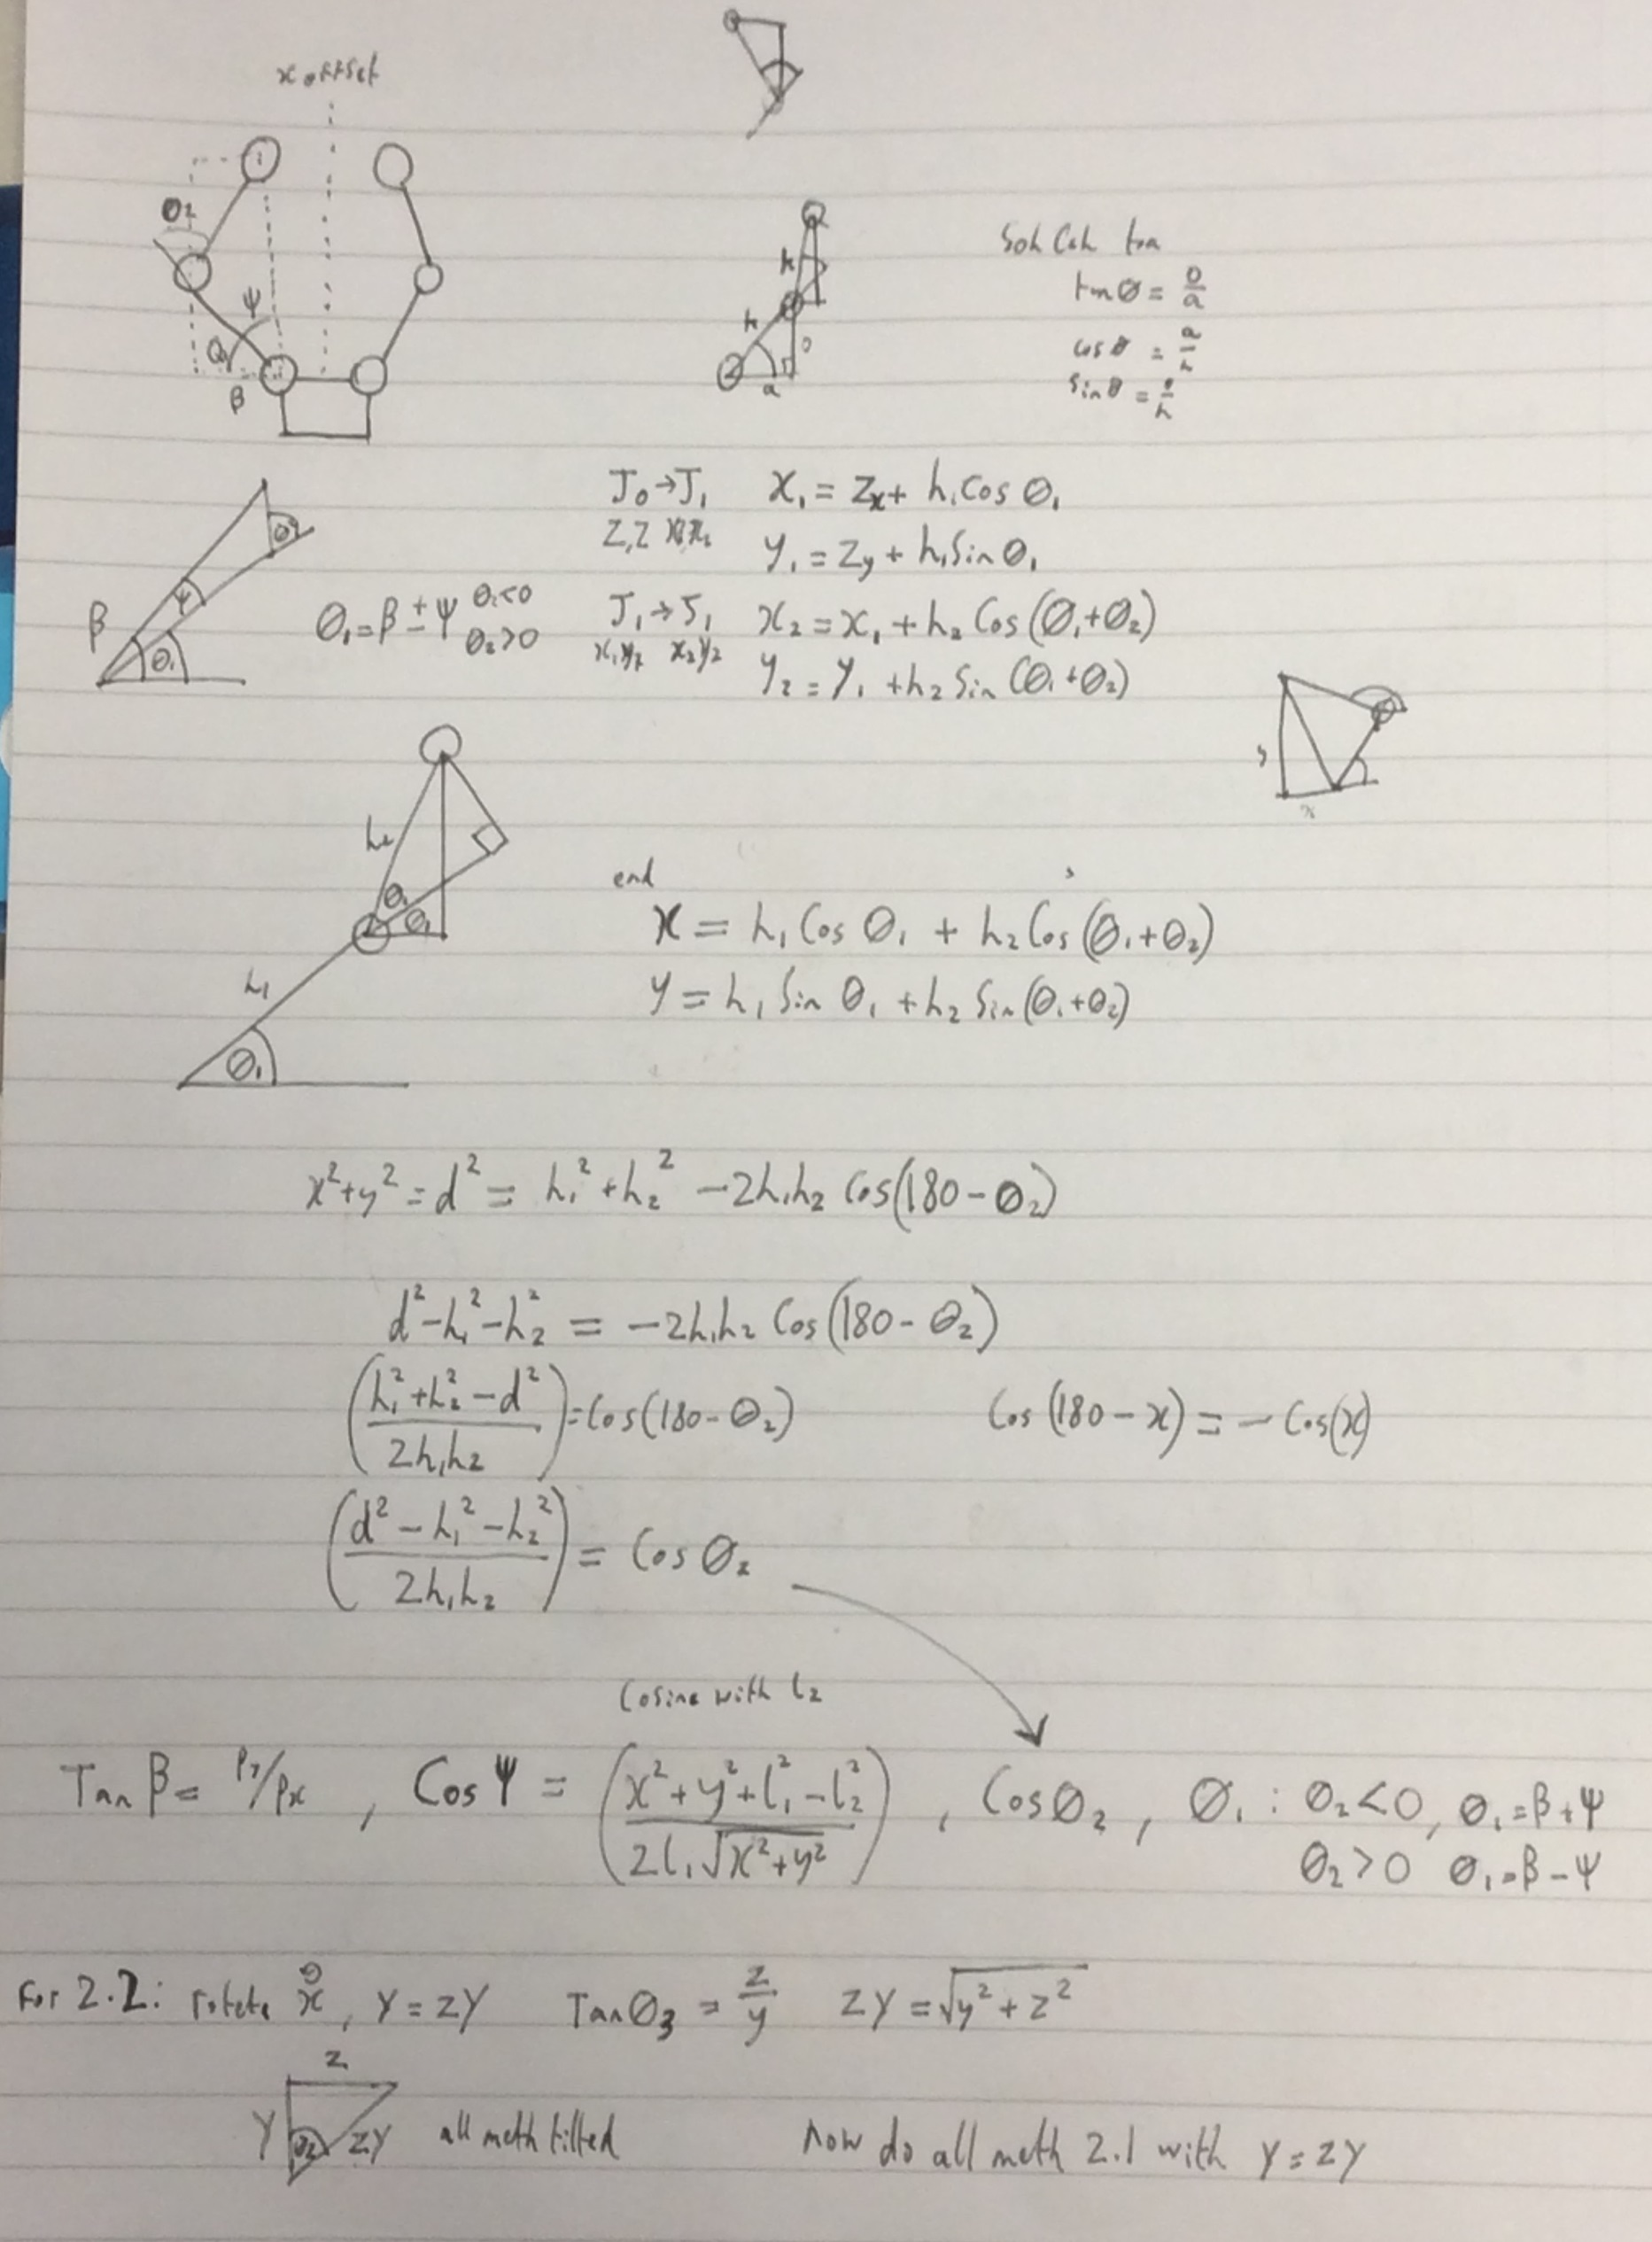 x offset
θ2
ψ
θ
β
h
h
o
a
Soh Cah toa
tanθ = o/a
cosθ = a/h
sinθ = o/h
J0→J1 x1 = Zx + h1 Cos θ1
y1 = Zy + h1 Sin θ1
β ψ θ1 θ2
θ1 = β ± ψ θ2<0 θ2>0
x1y1 x2y2
x2 = x1 + h2 Cos (θ1+θ2)
y2 = y1 + h2 Sin (θ1+θ2)
y
x
h2
h1
θ1
end
x = h1 Cos θ1 + h2 Cos (θ1+θ2)
y = h1 Sin θ1 + h2 Sin (θ1+θ2)
x²+y² = d² = h1² + h2² - 2h1h2 Cos(180-θ2)
d² - h1² - h2² = -2h1h2 Cos(180-θ2)
((h1² + h2² - d²)/2h1h2) = Cos(180-θ2) Cos (180-x) = - Cos(x)
((d² - h1² - h2²)/2h1h2) = Cos θ2
Cosine with l2
Tan β = Py/Px , Cos ψ = ((x²+y²+l1²-l2²)/2l1√x²+y²) , Cosθ2 , θ1 : θ2<0, θ1=β+ψ
θ2>0 θ1=β-ψ
For 2.2: rotate x, Y = ZY Tanθ3 = z/y ZY = √y²+z²
z
Y ZY all math tilted now do all math 2.1 with Y = ZY